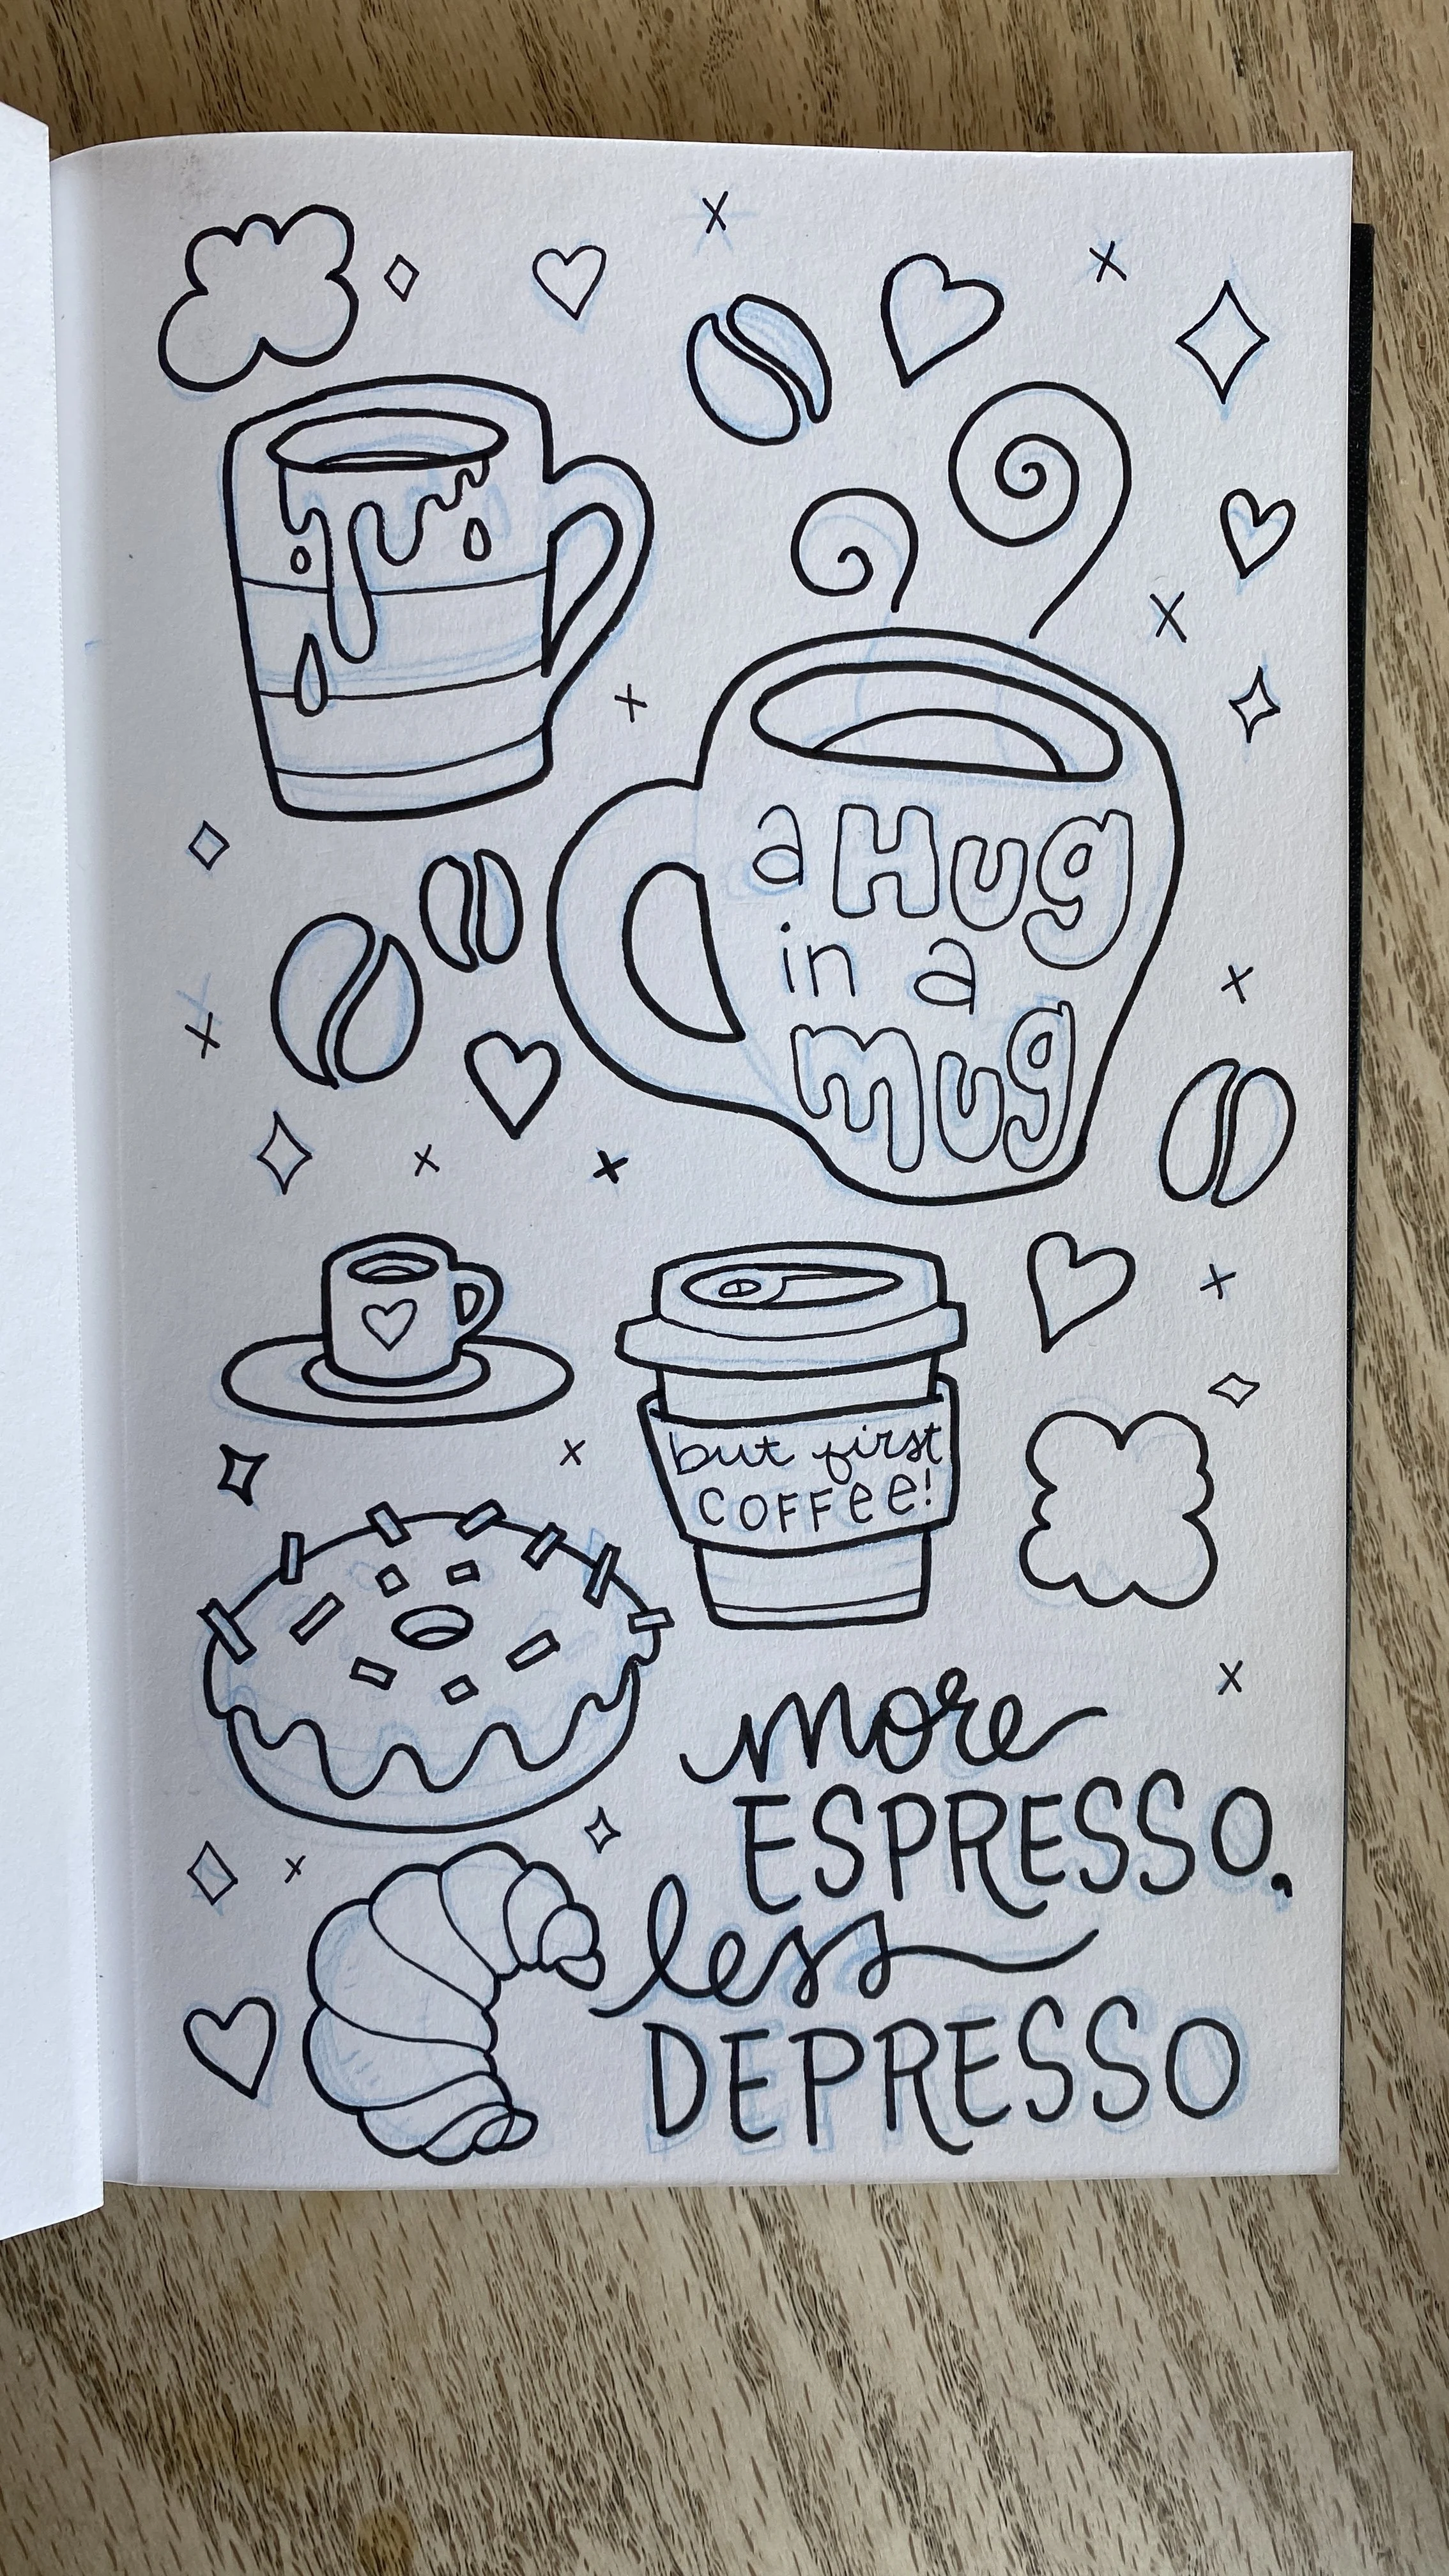 a Hug
in a
mug
but first
COFFee!
more
ESPRESSO,
less
DEPRESSO